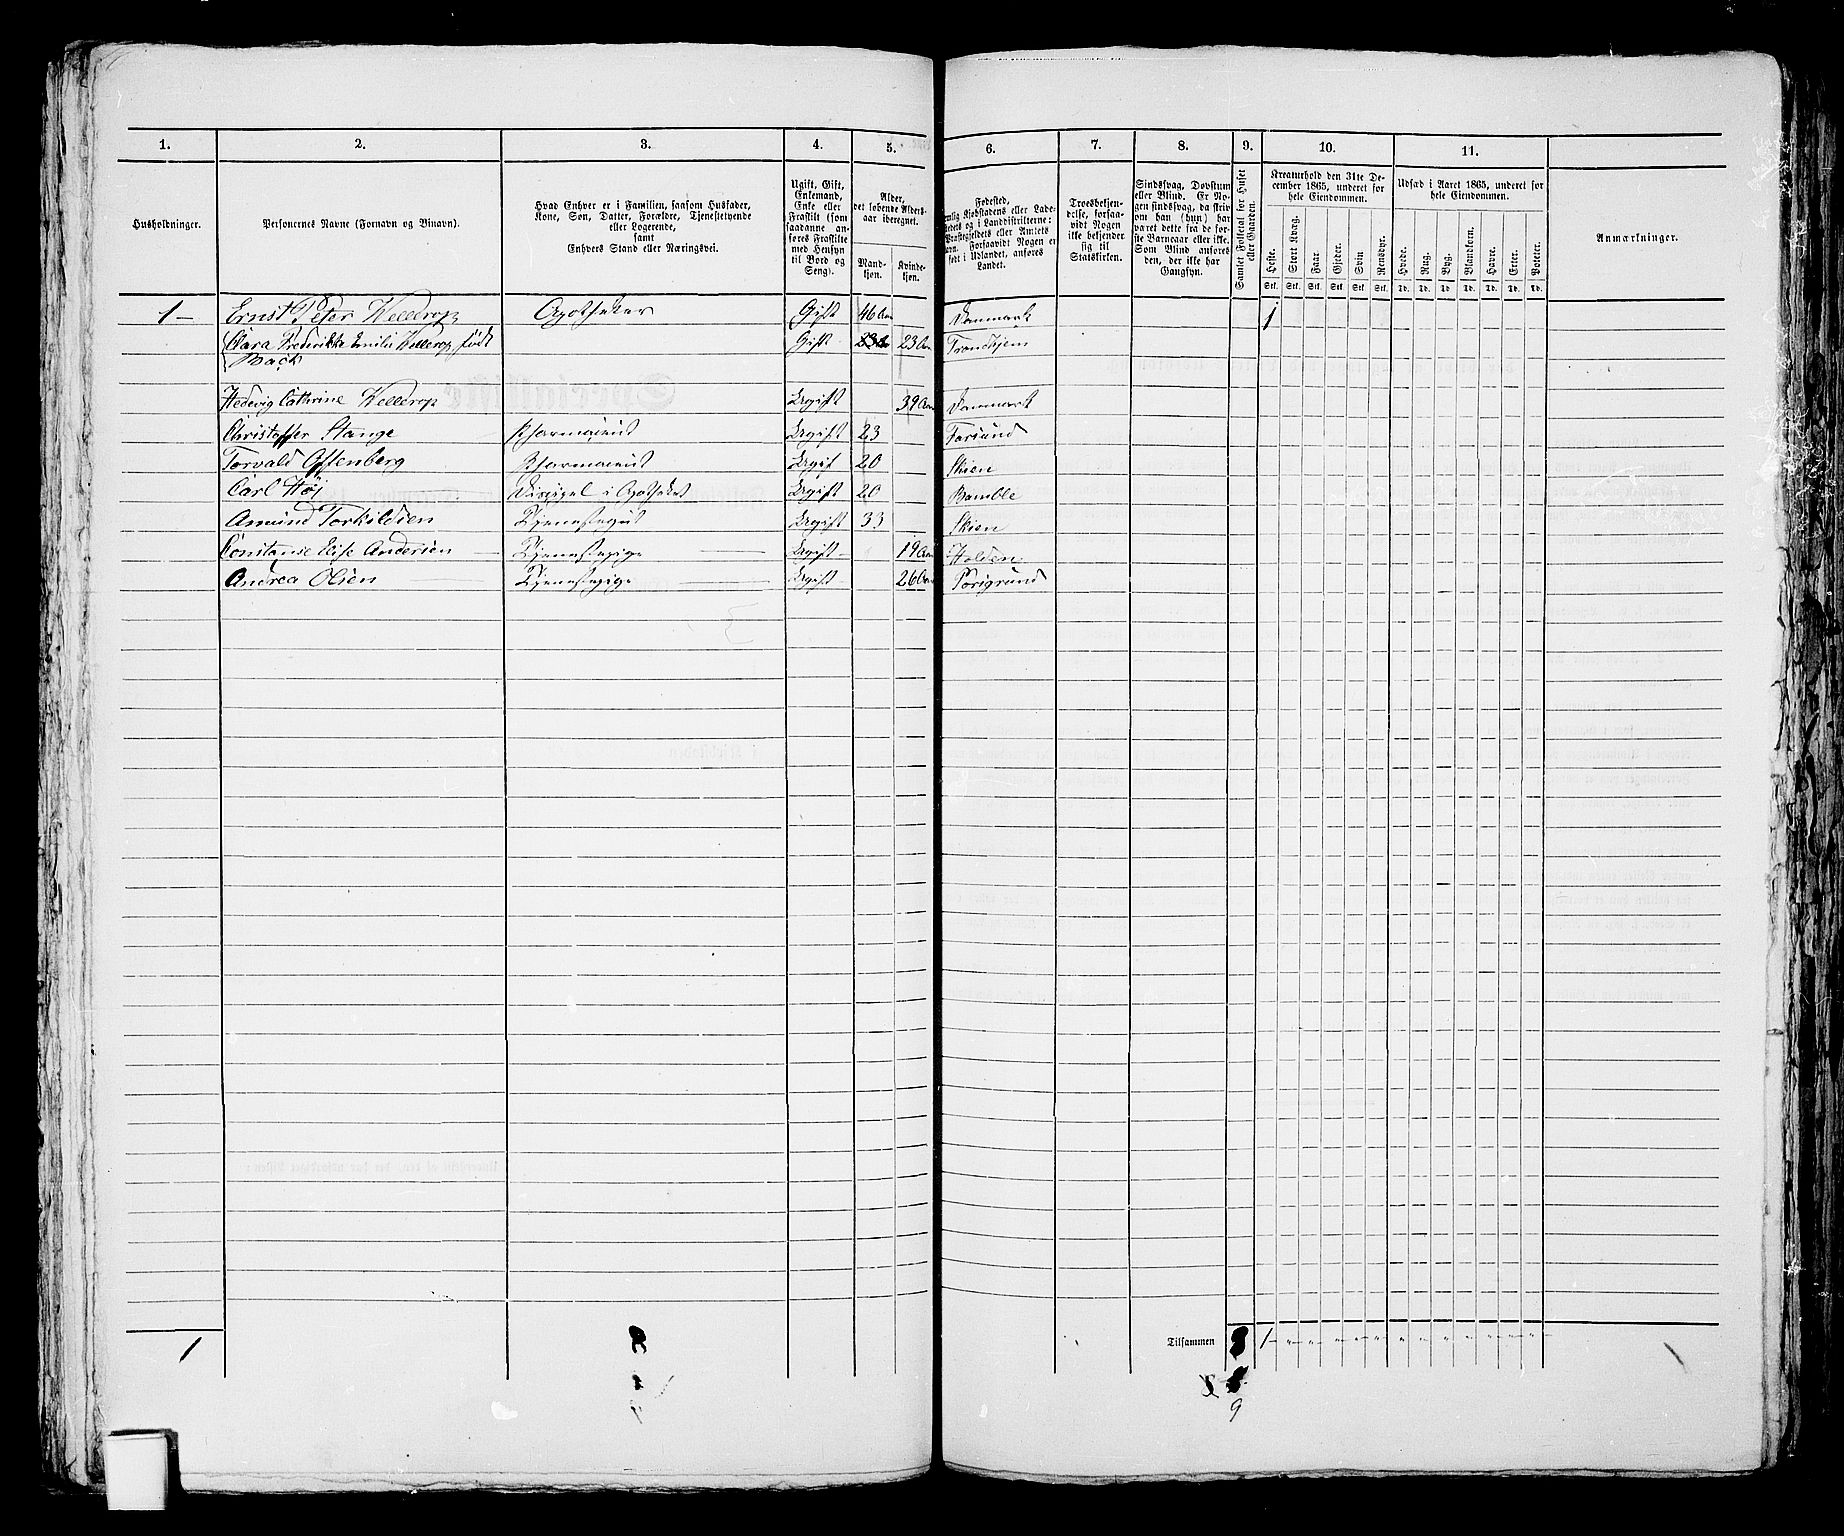 1. 2. 3. 4. 5. 6. 7. 8. 9. 10. 11.
Husholdninger.
Personernes Navne (Fornavn og Binavn).
Hvad Enhver er i Familien, saasom Husfader,
Kone, Søn, Datter, Forældre, Tjenestetyende
eller Logerende,
samt
Enhvers Stand eller Næringsvei.
Ugift, Gift,
Enkemand,
Enke eller
Fraskilt (som
saadanne an-
føres Fraskilte
med Hensyn
til Bord og
Seng).
Alder,
det løbende Alders-
aar iberegnet.
Mand-
kjøn.
Kvinde-
kjøn.
Fødested,
Kjøbstadens eller Lade-
stedets og i Landdistrikterne:
Præstegjeldets eller Amtets
Navn. Forsaavidt Nogen er
født i Udlandet, anføres
Landet.
Troesbekjen-
delse, forsaa-
vidt Nogen
ikke bekjender
sig til
Statskirken.
Sindssvag, Døvstum
eller Blind. Er No-
gen sindssvag, da skriv
om han (hun) har
været dette fra de før-
ste Barneaar eller ikke.
Som Blind anføres
den, der ikke har
Gangsyn.
Samlet Folketal for Huset
eller Gaarden.
Kreaturhold den 31te De-
cember 1865, underet for
hele Eiendommen.
Heste. Stort Kvæg. Faar. Gjeder. Svin Rensdyr.
Stk. Stk. Stk. Stk. Stk. Stk.
Udsæd i Aaret 1865, underet for
hele Eiendommen.
Hvede. Rug. Byg. Blandkorn. Havre. Erter. Poteter.
Td. Td. Td. Td. Td. Td. Td.
Anmærkninger.
1 — Ernst Peter Kellerop Apotheker Gift 46 Aar Danmark 1
Clara Frederikke Emilie Kellerop født Gift 23 Aar Trondhjem
Back
Hedevig Cathrine Kellerop Ugift 39 Aar Danmark
Christoffer Stange Pharmaceut Ugift 23 Farsund
Torvald Oftenberg Pharmaceut Ugift 20 Skien
Carl Höj Discipel i Apotheket Ugift 20 Bamble
Amund Torkildsen Tjenestegut Ugift 33 Skien
Constanse Elise Andersen Tjenestepige Ugift 19 Aar Holden
Andrea Olsen Tjenestepige Ugift 26 Aar Porsgrund
1 8 Tilsammen 8 1
9